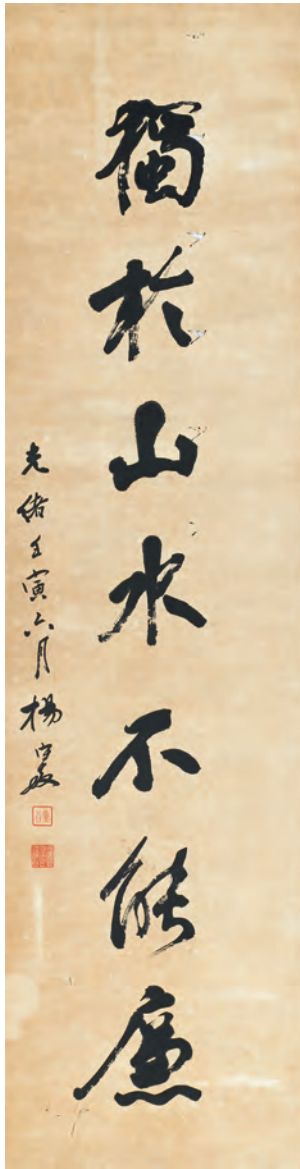 獨於山水不能廉
光緒壬寅六月楊守敬